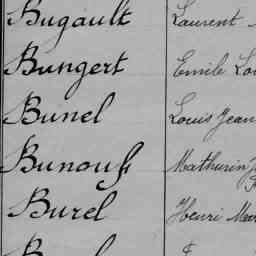 Bugault Laurent
Bungert Emile
Bunel Louis Jean
Bunouf Mathurin
Burel Henri